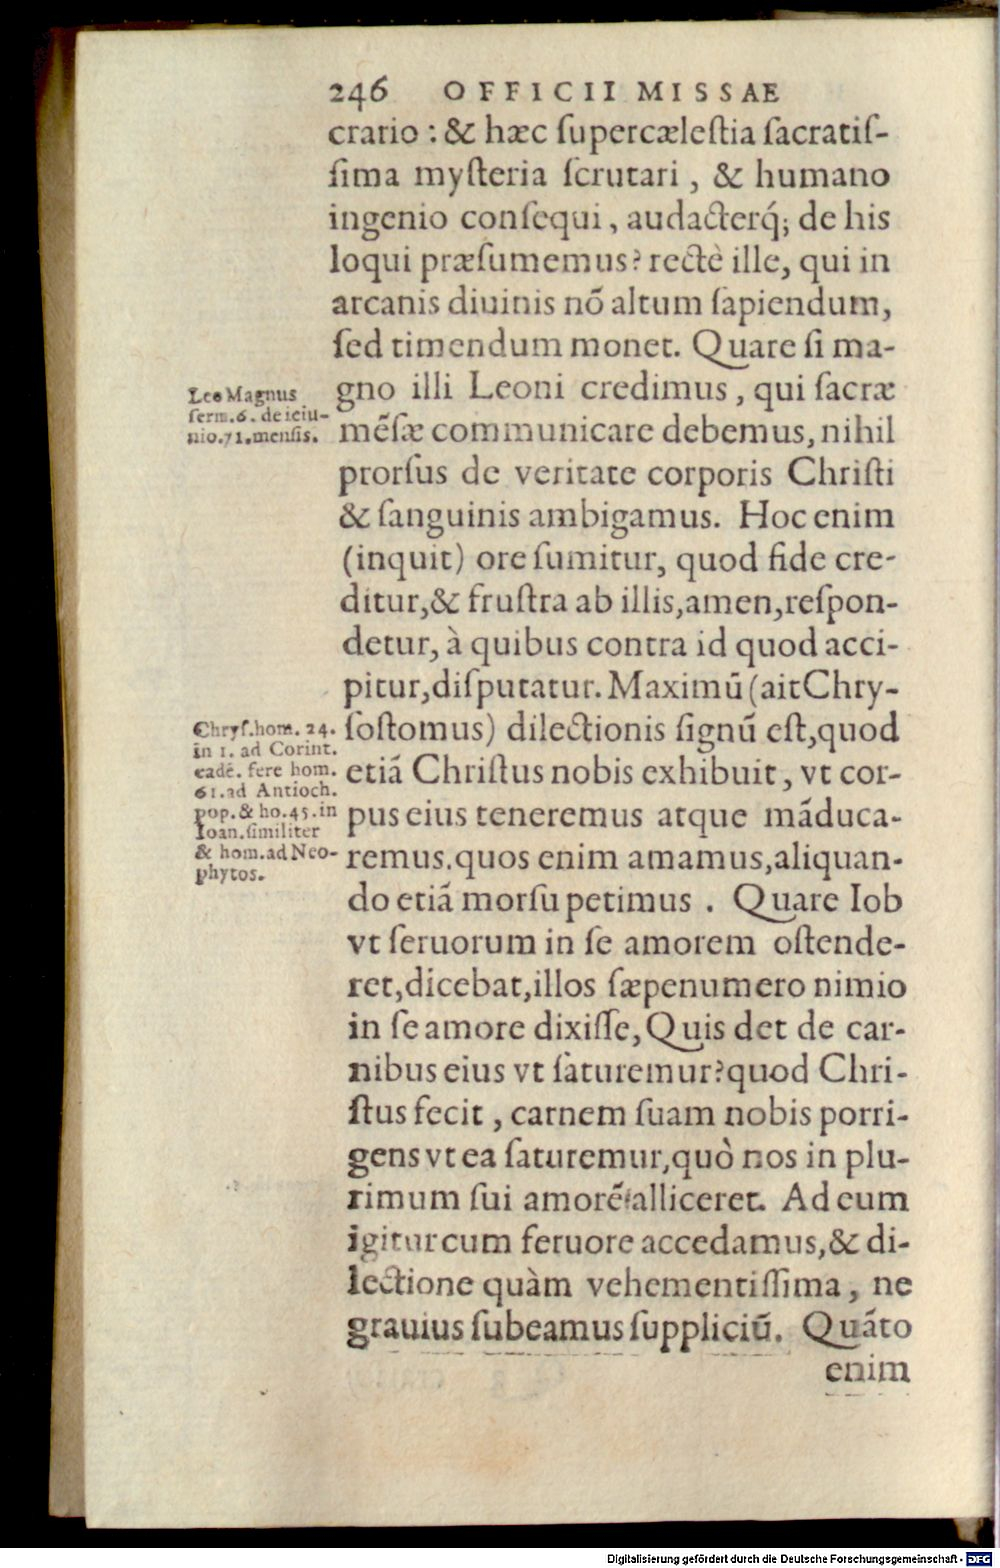 246 OFFICII MISSAE
cratio : & hæc ſupercæleſtia ſacratiſ-
ſima myſteria ſcrutari, & humano
ingenio conſequi, audacterq́; de his
loqui præſumemus? rectè ille, qui in
arcanis diuinis nō altum ſapiendum,
ſed timendum monet. Quare ſi ma-
gno illi Leoni credimus, qui ſacræ
mēſæ communicare debemus, nihil
prorſus de veritate corporis Chriſti
& ſanguinis ambigamus. Hoc enim
(inquit) ore ſumitur, quod fide cre-
ditur,& fruſtra ab illis,amen,reſpon-
detur, à quibus contra id quod acci-
pitur,diſputatur. Maximū (ait Chry-
ſoſtomus) dilectionis ſignū eſt,quod
etiā Chriſtus nobis exhibuit, vt cor-
pus eius teneremus atque māduca-
remus.quos enim amamus,aliquan-
do etiā morſu petimus . Quare Iob
vt ſeruorum in ſe amorem oſtende-
ret,dicebat,illos ſæpenumero nimio
in ſe amore dixiſſe, Quis det de car-
nibus eius vt ſaturemur?quod Chri-
ſtus fecit, carnem ſuam nobis porri-
gens vt ea ſaturemur,quò nos in plu-
rimum ſui amorē alliceret. Ad eum
igitur cum feruore accedamus,& di-
lectione quàm vehementiſſima, ne
grauius ſubeamus ſuppliciū. Quāto
enim
Leo Magnus
ſerm.6. de ieiu-
nio.71.menſis.
Chryſ.hom. 24.
in 1. ad Corint.
eadē. fere hom.
61.ad Antioch.
pop. & ho.45.in
Ioan.ſimiliter
& hom.ad Neo-
phytos.
Digitalisierung gefördert durch die Deutsche Forschungsgemeinschaft - DFG